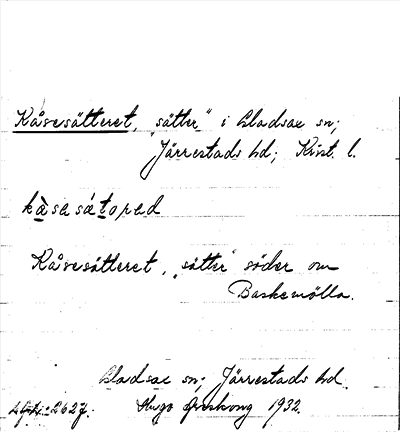 Kåsesätteret, "sätter" i Gladsax sn;
Järrestads hd; Krist. l.
kàsasátorad
Kåsesätteret, "sätter" söder om
Baskemölla.
Gladsax sn; Järrestads hd.
Hugo Areskoug 1932.